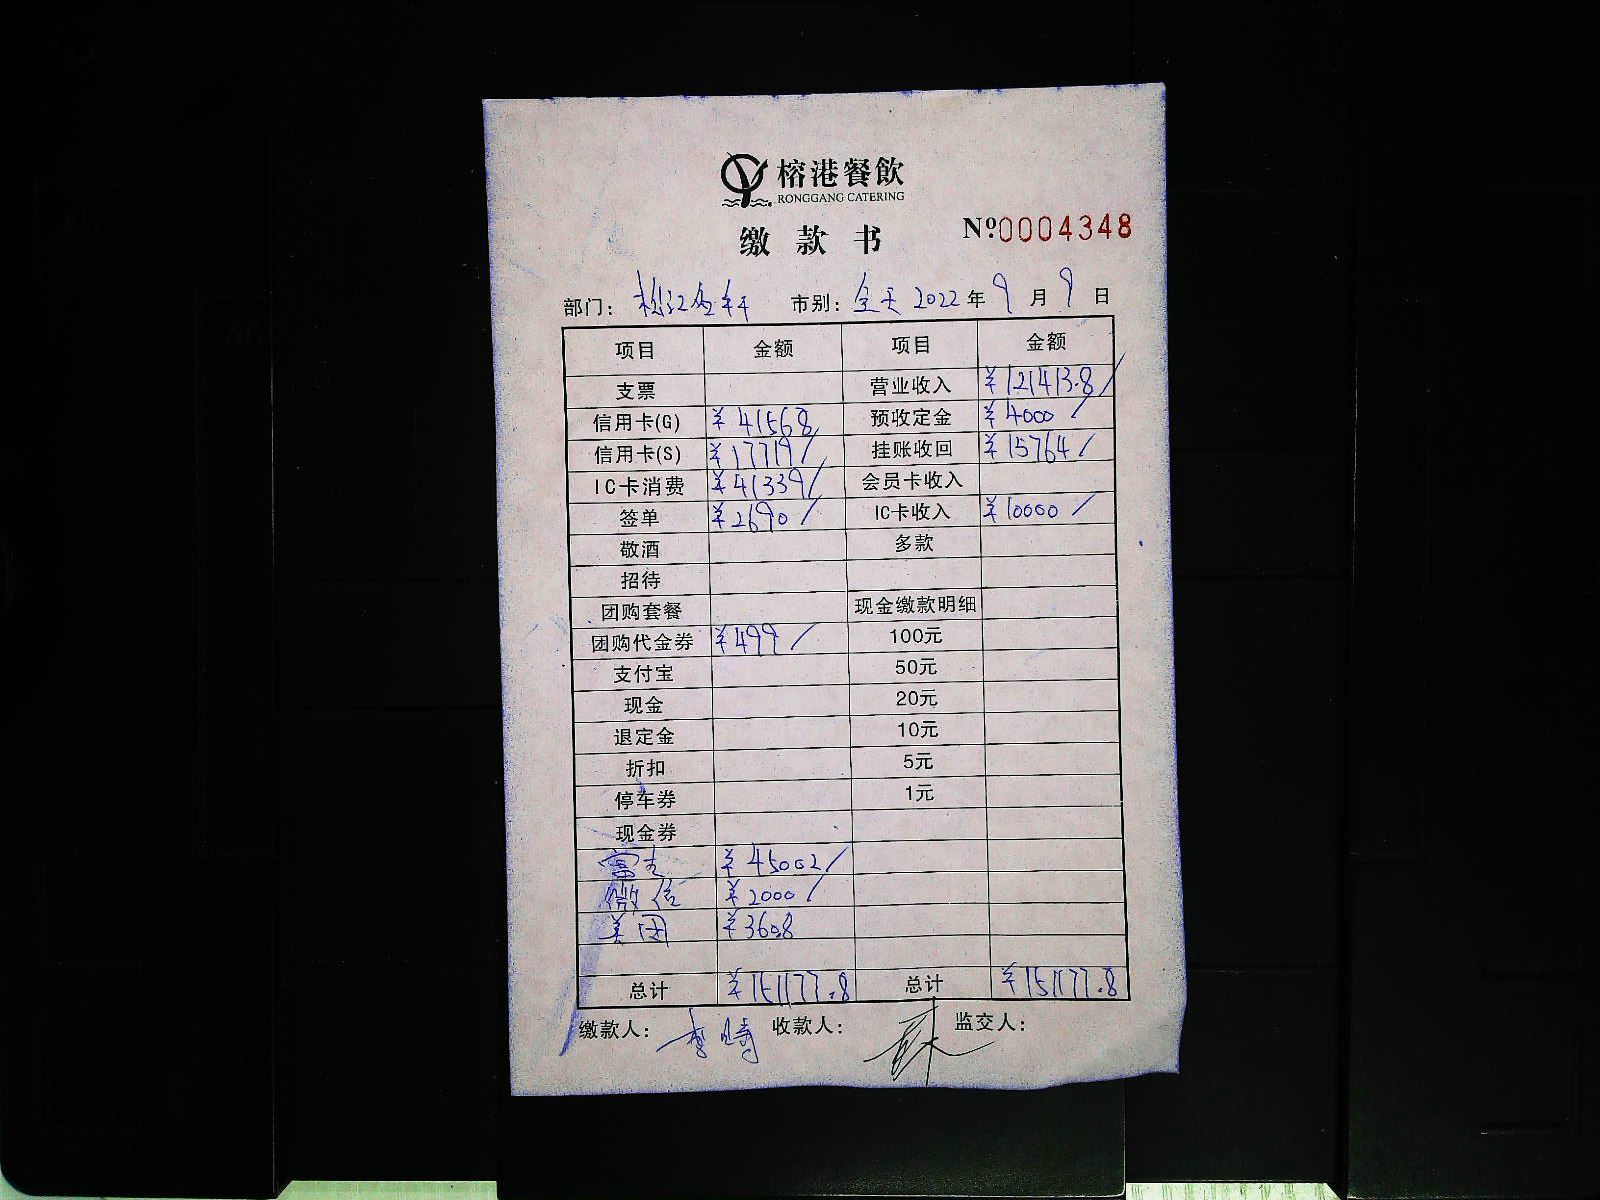 榕港餐飲
RONGGANG CATERING
缴款书
№0004348
部门: 松江 轩 市别: 全天 2022年9月9日
项目 金额 项目 金额
支票 营业收入 ¥121413.8/
信用卡(G) ¥41568/ 预收定金 ¥4000/
信用卡(S) ¥17719/ 挂账收回 ¥15764/
IC卡消费 ¥41339/ 会员卡收入
签单 ¥2690/ IC卡收入 ¥10000/
敬酒 多款
招待
团购套餐 现金缴款明细
团购代金券 ¥499/ 100元
支付宝 50元
现金 20元
退定金 10元
折扣 5元
停车券 1元
现金券
富友 ¥45002/
微信 ¥2000/
美团 ¥360.8
总计 ¥151177.8 总计 ¥151177.8
缴款人: 李 收款人: 监交人: